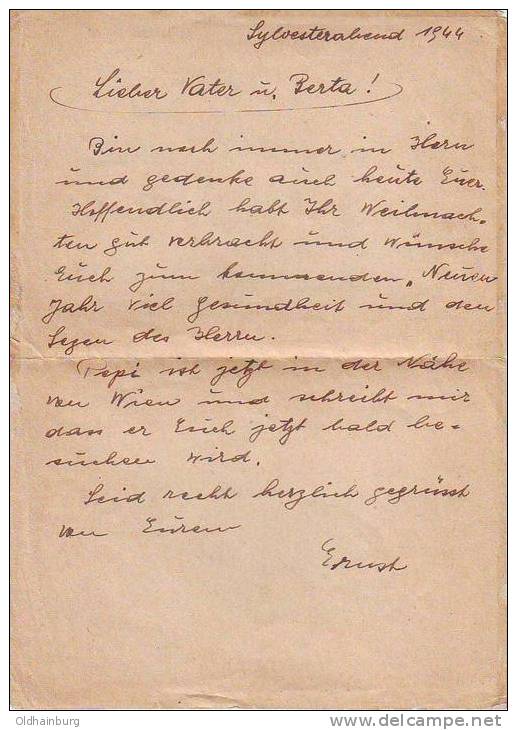 Sylvesterabend 1944
Lieber Vater u. Berta!
Bin noch immer in Hern
und gedenke auch heute Euer.
Hoffendlich habt Ihr Weihnach-
ten gut verbracht und wünsche
Euch zum kommenden „Neuen
Jahr viel Gesundheit und den
Segen des Herrn.
Pepi ist jetzt in der Nähe
von Wien und schreibt mir
dass er Euch jetzt bald be-
suchen wird.
Seid recht herzlich gegrüsst
von Eurem
Ernst
Oldhainburg
www.delcampe.net